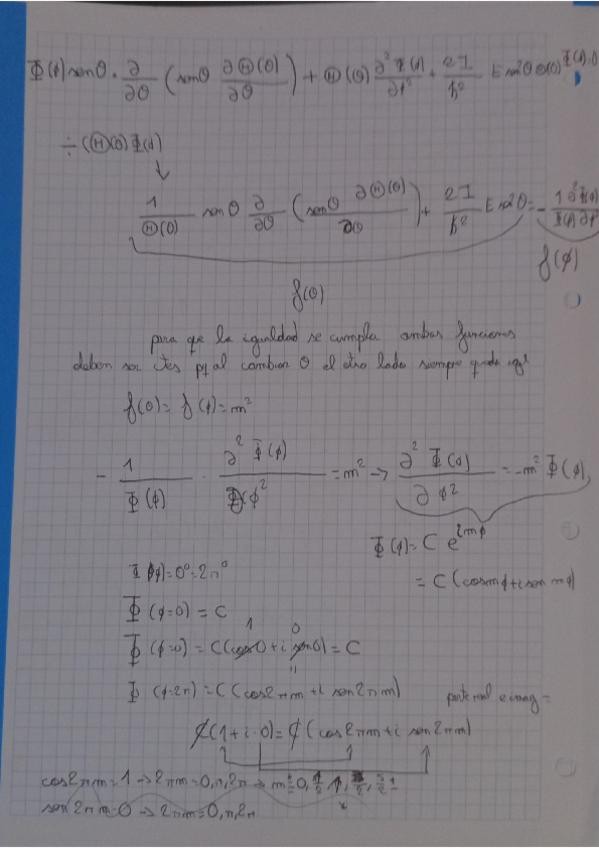 Φ(φ) senθ · ∂/∂θ (senθ ∂Θ(θ)/∂θ) + Θ(θ) ∂²Φ(φ)/∂φ² + 2I/ħ² E sen²θ Θ(θ) Φ(φ)=0
÷ (Θ(θ) Φ(φ))
↓
1/Θ(θ) senθ ∂/∂θ (senθ ∂Θ(θ)/∂θ) + 2I/ħ² E sen²θ = - 1/Φ(φ) ∂²Φ(φ)/∂φ²
f(φ)
f(θ)
para que la igualdad se cumpla ambas funciones
deben ser ctes pq al cambiar θ el otro lado siempre queda
f(θ) = f(φ) = m²
- 1/Φ(φ) · ∂²Φ(φ)/∂φ² = m² → ∂²Φ(φ)/∂φ² = -m² Φ(φ)
Φ(φ) = C e^imφ
= C (cos mφ + i sen mφ)
Φ(φ)=0º=2π
Φ (φ=0) = C
1 0
Φ (φ=0) = C(cos0 + i sen0) = C
Φ (φ=2π) = C (cos2πm + i sen2πm)
parte real e imag =
C(1 + i·0) = C (cos2πm + i sen2πm)
cos2πm = 1 → 2πm = 0, π, 2π → m = 0,
sen2πm = 0 → 2πm = 0, π, 2π